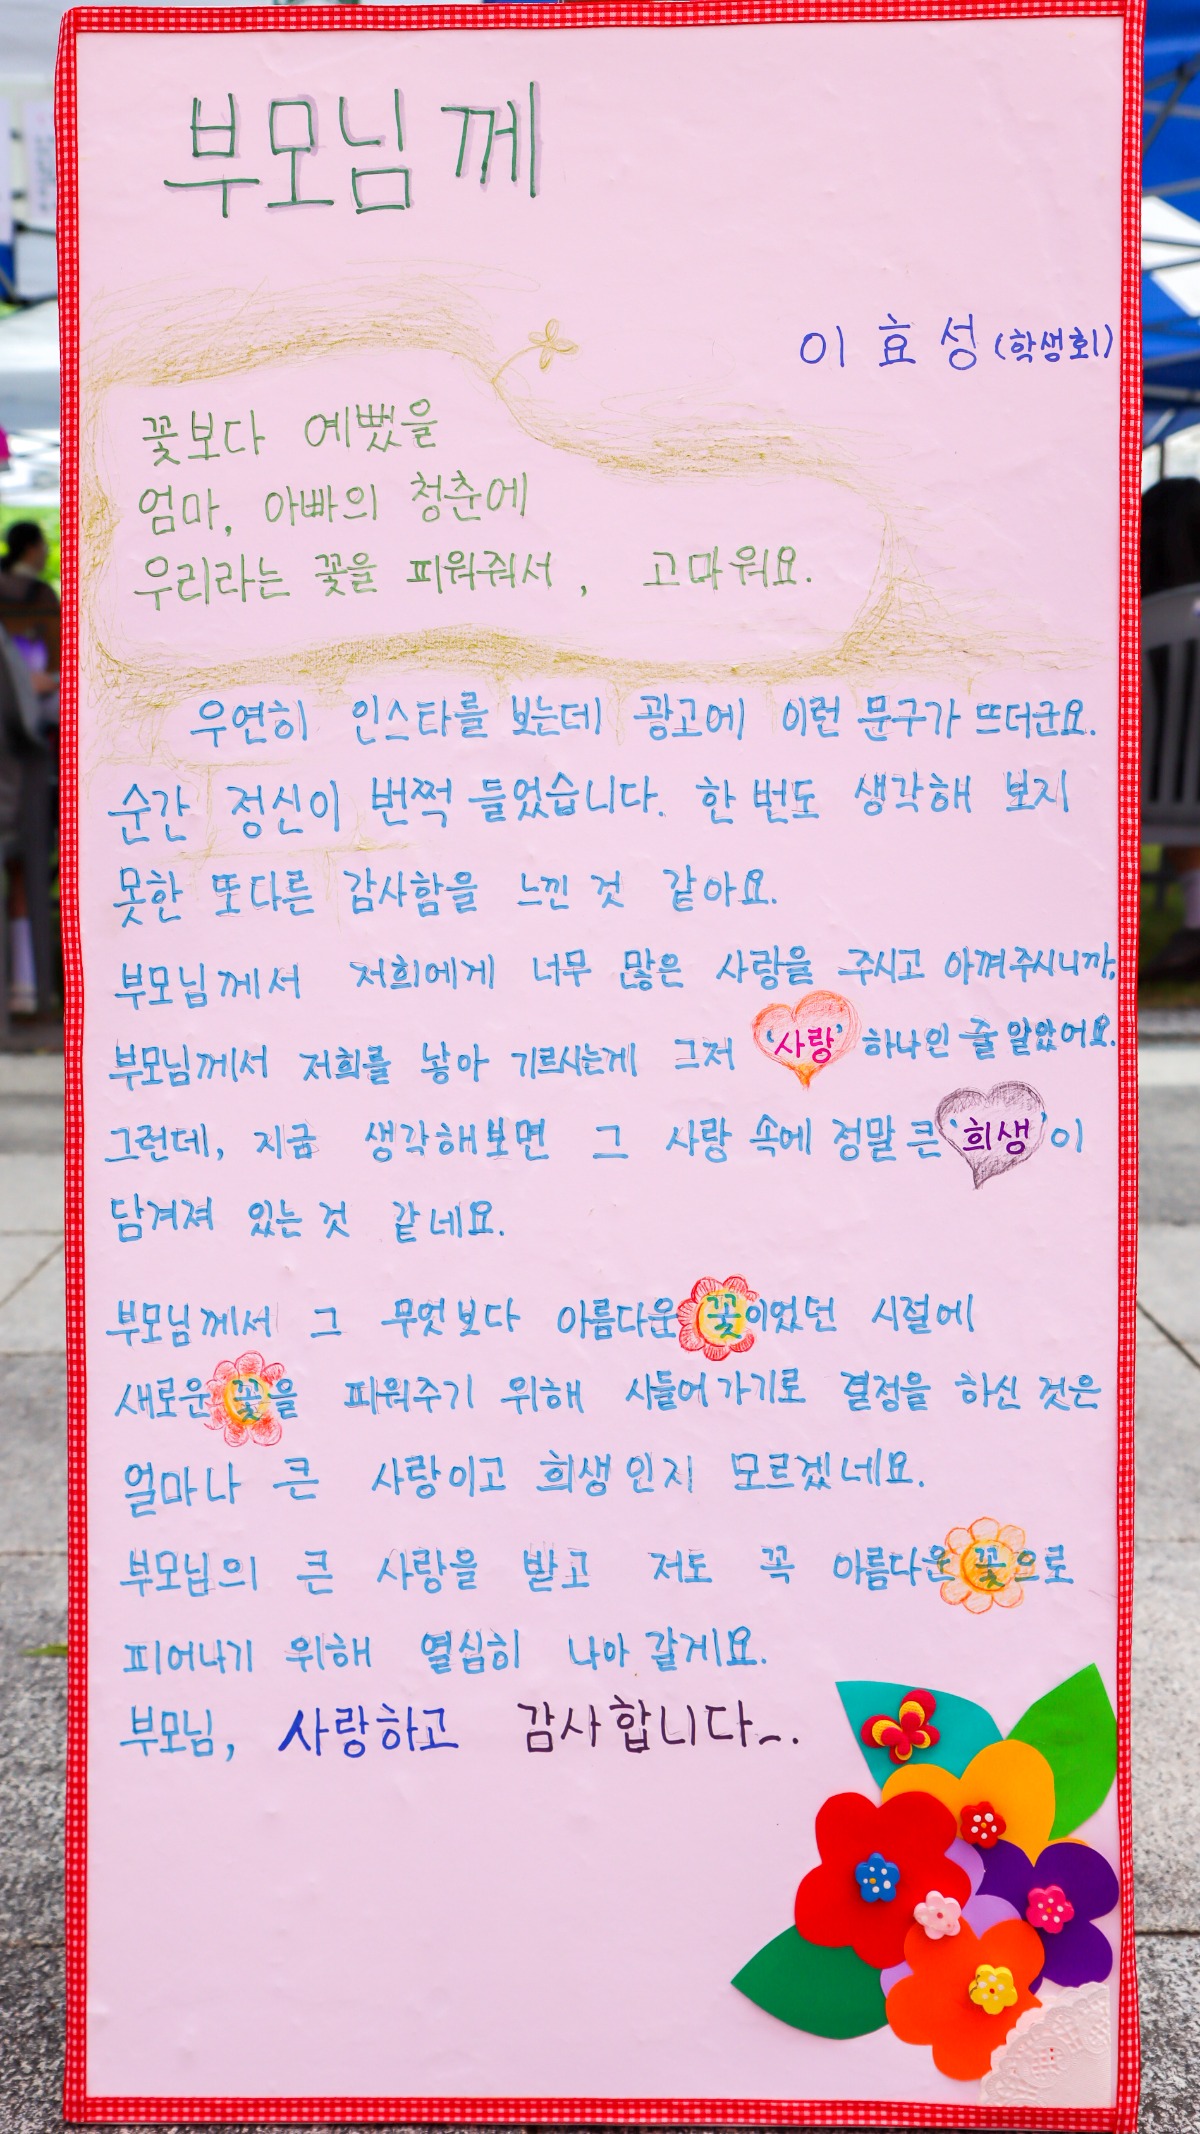 부모님께
이 효 성 (학생회)
꽃보다 예뻤을
엄마, 아빠의 청춘에
우리라는 꽃을 피워줘서, 고마워요.
우연히 인스타를 보는데 광고에 이런 문구가 뜨더군요.
순간 정신이 번쩍 들었습니다. 한 번도 생각해 보지
못한 또다른 감사함을 느낀 것 같아요.
부모님께서 저희에게 너무 많은 사랑을 주시고 아껴주시니까,
부모님께서 저희를 낳아 기르시는게 그저 '사랑' 하나인 줄 알았어요.
그런데, 지금 생각해보면 그 사랑 속에 정말 큰 '희생'이
담겨져 있는 것 같네요.
부모님께서 그 무엇보다 아름다운 꽃이었던 시절에
새로운 꽃을 피워주기 위해 시들어가기로 결정을 하신 것은
얼마나 큰 사랑이고 희생인지 모르겠네요.
부모님의 큰 사랑을 받고 저도 꼭 아름다운 꽃으로
피어나기 위해 열심히 나아 갈게요.
부모님, 사랑하고 감사합니다~.